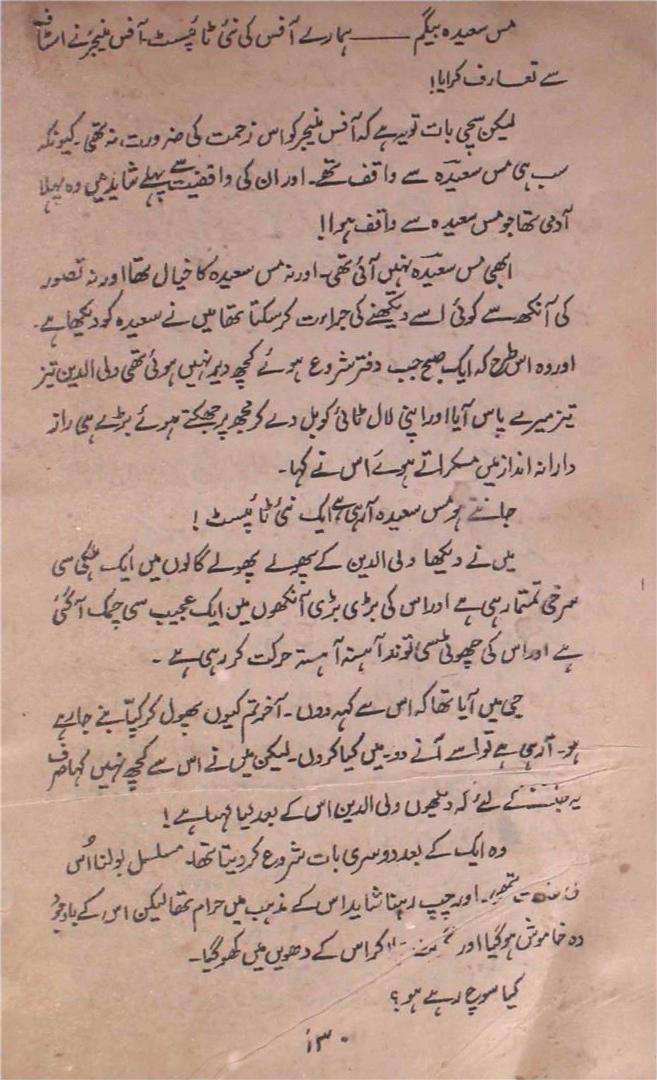 مس سعیدہ بیگم ——— ہمارے آفس کی نئی ٹائپسٹ۔ آفس منیجر نے اسٹاف
سے تعارف کرایا!
لیکن سچی بات تو یہ ہے کہ آفس منیجر کو اس زحمت کی ضرورت نہ تھی۔ کیونکہ
سب ہی مس سعیدہ سے واقف تھے۔ اور ان کی واقفیت سے پہلے شاید میں وہ پہلا
آدمی تھا جو مس سعیدہ سے واقف ہوا!
ابھی مس سعیدہ نہیں آئی تھی۔ اور نہ مس سعیدہ کا خیال تھا اور نہ تصور
کی آنکھ سے کوئی اسے دیکھنے کی جراءت کر سکتا تھا میں نے سعیدہ کو دیکھا ہے۔
اور وہ اس طرح کہ ایک صبح جب دفتر شروع ہوئے کچھ دیر نہیں ہوئی تھی ولی الدین تیز
تیز میرے پاس آیا اور اپنی لال ٹائی کو بل دے کر مجھ پر جھکتے ہوئے بڑے ہی راز
دارانہ انداز میں مسکراتے ہوئے اس نے کہا۔
جانتے ہو مس سعیدہ آرہی ہے ایک نئی ٹائپسٹ!
میں نے دیکھا ولی الدین کے پھولے پھولے گالوں میں ایک ہلکی سی
سرخی تمتما رہی ہے اور اس کی بڑی بڑی آنکھوں میں ایک عجیب سی چمک آگئی
ہے اور اس کی چھوٹی سی توند آہستہ آہستہ حرکت کر رہی ہے۔
جی میں آیا تھا کہ اس سے کہہ دوں۔ آخر تم کیوں پھول کر کپّا بنے جا رہے
ہو۔ آرہی ہے تو اسے آنے دو۔ میں کیا کروں۔ لیکن میں نے اس سے کچھ نہیں کہا صرف
یہ کے لئے کہ دیکھوں ولی الدین اس کے بعد کیا کہتا ہے!
وہ ایک کے بعد دوسری بات شروع کر دیتا تھا۔ مسلسل بولنا اُس
تھی۔ اور چپ رہنا شاید اس کے مذہب میں حرام تھا لیکن اس کے باوجود
وہ خاموش ہو گیا اور کر اس کے دھویں میں کھو گیا۔
کیا سوچ رہے ہو؟
۱۳۰